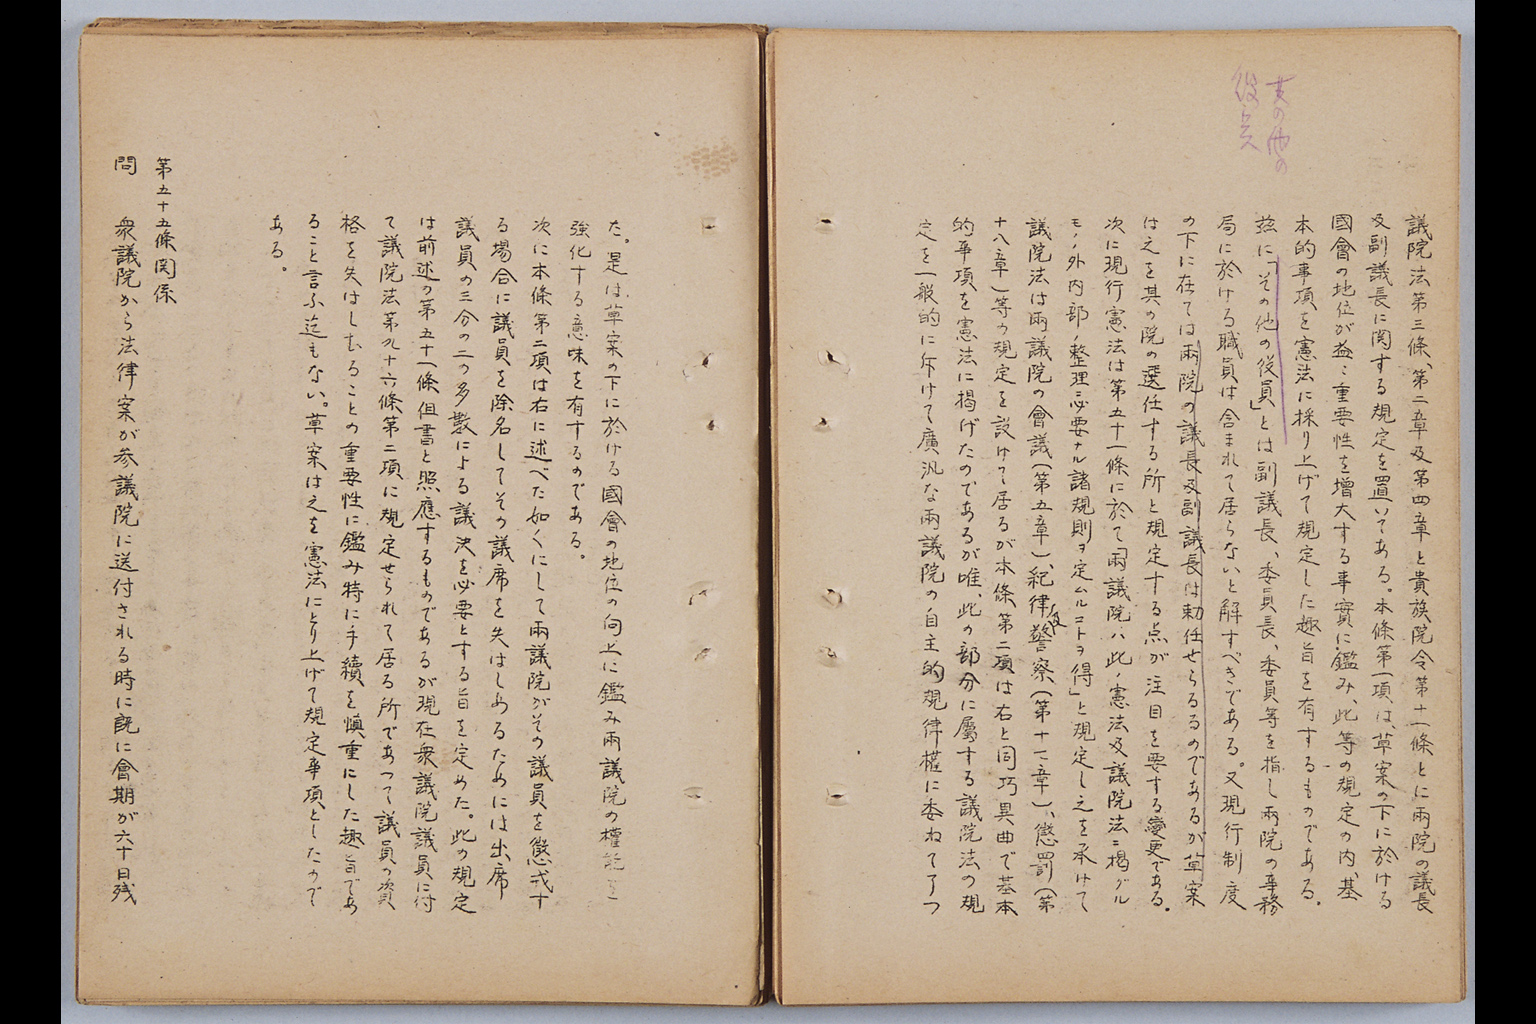 其の他の
役員
議院法第三條、第二章及第四章と貴族院令第十一條とに兩院の議長
及副議長に関する規定を置いてある。本條第一項は、草案の下に於ける
國會の地位が益〻重要性を增大する事實に鑑み、此等の規定の内、基
本的事項を憲法に採り上げて規定した趣旨を有するものである。
茲に「その他の役員」とは副議長、委員長、委員等を指し兩院の事務
局に於ける職員は含まれて居らないと解すべきである。又現行制度
の下に在ては兩院の議長及副議長は勅任せらるるのであるが草案
は之を其の院の選任する所と規定する点が注目を要する變更である。
次に現行憲法は第五十一條に於て「兩議院ハ此ノ憲法及議院法ニ掲グル
モノノ外内部ノ整理ニ必要ナル諸規則ヲ定ムルコトヲ得」と規定し之を承けて
議院法は兩議院の會議(第五章)、紀律及警察(第十七章)、懲罰(第
十八章)等の規定を設けて居るが本條第二項は右と同巧異曲で基本
的事項を憲法に掲げたのであるが唯、此の部分に屬する議院法の規
定を一般的に斥けて廣汎な兩議院の自主的規律權に委ねて了つ
た。是は草案の下に於ける國會の地位の向上に鑑み兩議院の權能を
強化する意味を有するのである。
次に本條第二項は右に述べた如くにして兩議院がその議員を懲戒す
る場合に議員を除名してその議席を失はしめるためには出席
議員の三分の二の多數による議決を必要とする旨を定めた。此の規定
は前述の第五十一條但書と照應するものであるが現在衆議院議員に付
て議院法第九十六條第二項に規定せられて居る所であつて議員の資
格を失はしむることの重要性に鑑み特に手續を愼重にした趣旨であ
ること言ふ迄もない。草案は之を憲法にとり上げて規定事項としたので
ある。
第五十五條関係
問　衆議院から法律案が参議院に送付される時に既に會期が六十日残